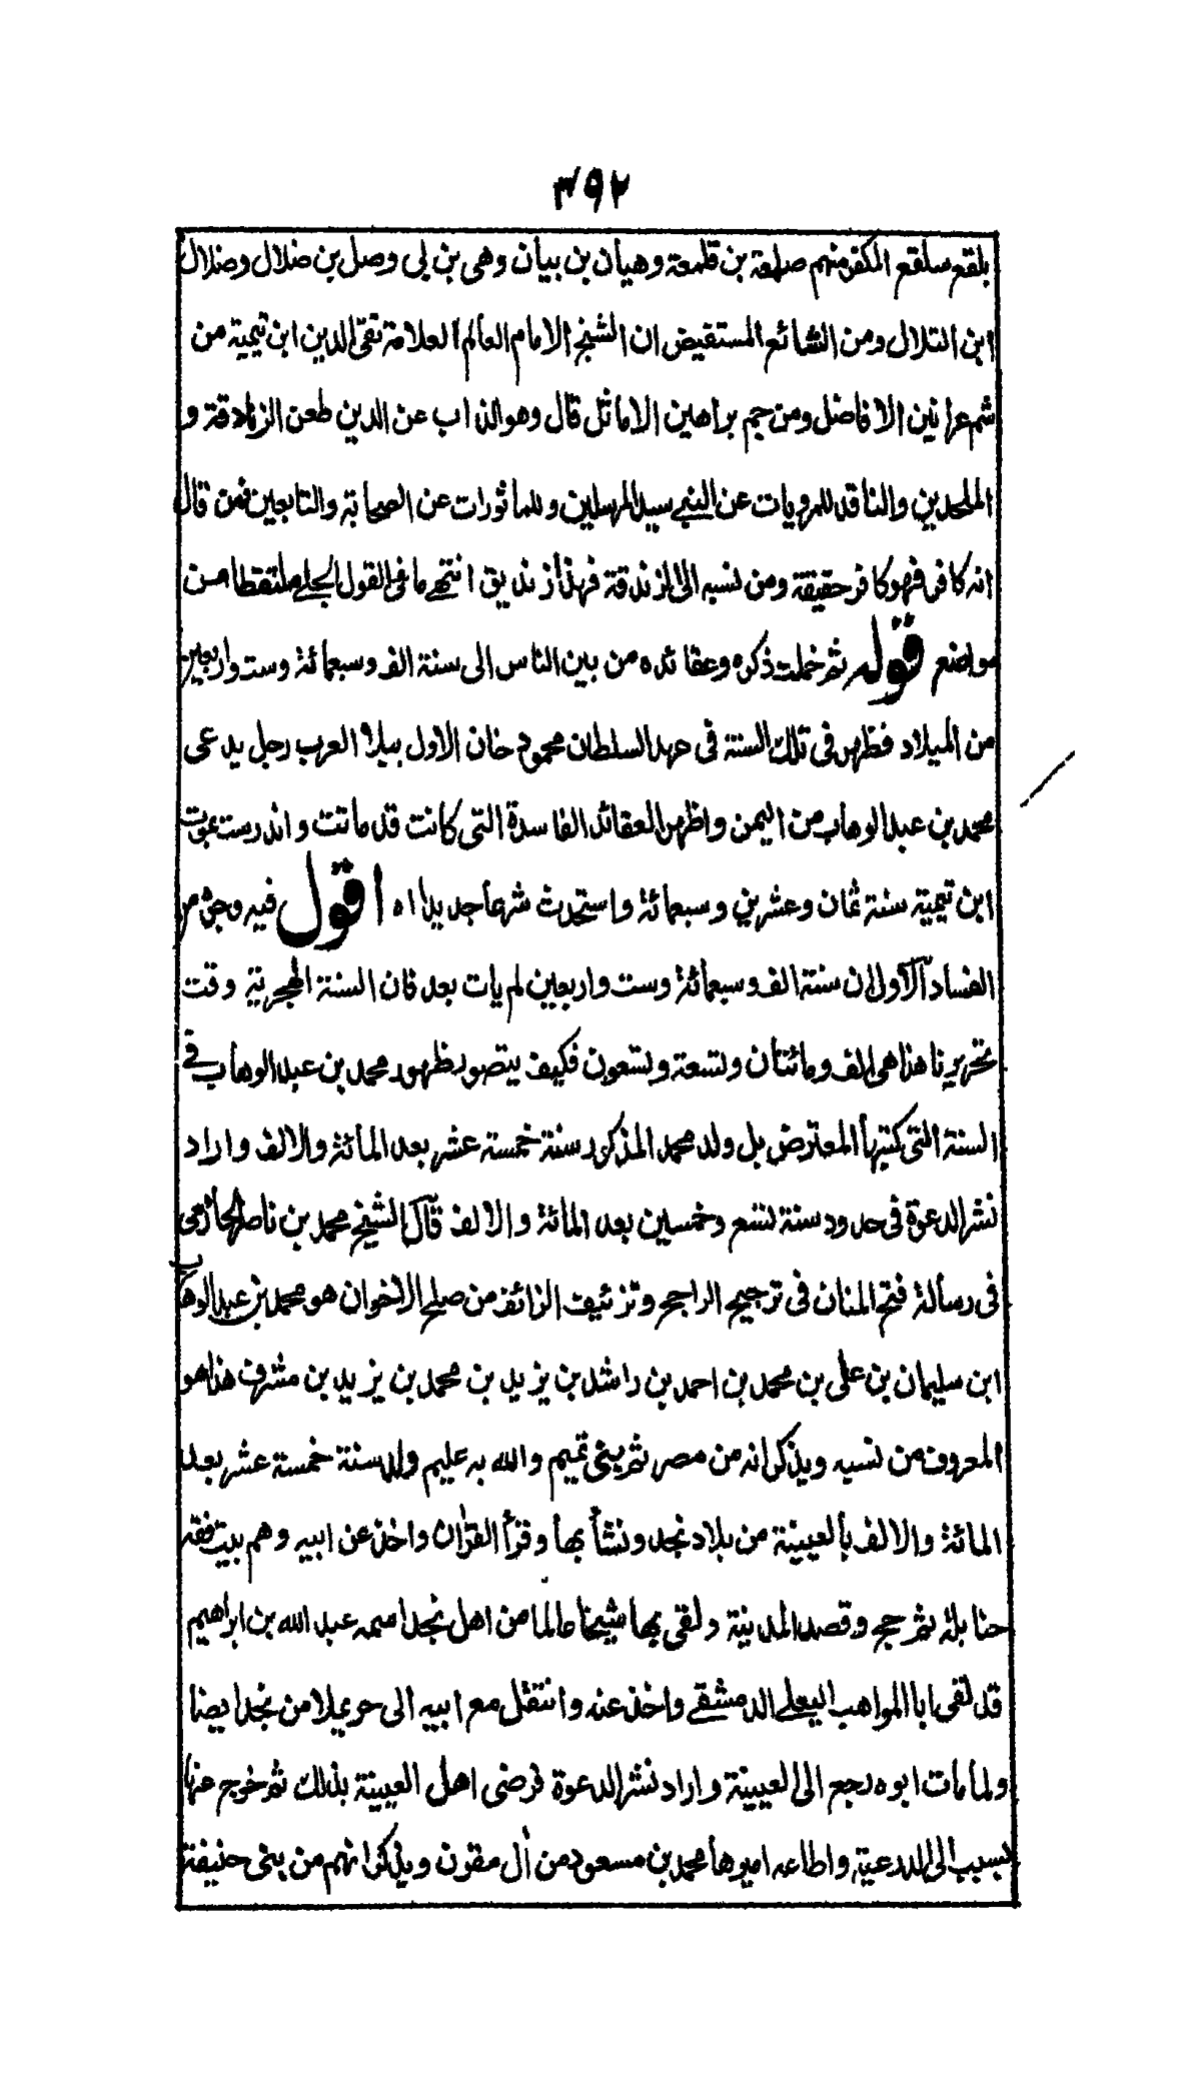 ٣٩٢
بلقع سلقع المكفر منهم صلمعة بن قلمعة وهيان بن بيان وهى بن بى وصل بن ضلال وضلال
ابن التلال ومن الشائع المستفيض ان الشيخ الامام العالم العلامة تقى الدين ابن تيمية من
شم عرانين الافاضل ومن جم براهين الاماثل قال وهو الذاب عن الدين طعن الزنادقة و
الملحدين والناقد للمرويات عن النبى سيد المرسلين وللماثورات عن الصحابة والتابعين فمن قال
انه كافر فهو كافر حقيقة ومن نسبه الى الزندقة فهذا زنديق انتهى ما فى القول الجلى ملتقطا من
مواضع قوله ثم خملت ذكره وعقائده من بين الناس الى سنة الف وسبعمائة وست واربعين
من الميلاد فظهر فى تلك السنة فى عهد السلطان محمود خان الاول ببلاد العرب رجل يدعى
محمد بن عبد الوهاب من اليمن واظهر العقائد الفاسدة التى كانت قد ماتت واندرست بموت
ابن تيمية سنة ثمان وعشرين وسبعمائة واستحدث شرعا جديدا اه اقول فيه وجوه من
الفساد الاول ان سنة الف وسبعمائة وست واربعين لم يات بعد فان السنة الهجرية وقت
تحريرنا هذا هى الف ومائتان وتسعة وتسعون فكيف يتصور ظهور محمد بن عبد الوهاب فى
السنة التى كتبها المعترض بل ولد محمد المذكور سنة خمسة عشر بعد المائة والالف واراد
نشر الدعوة فى حدود سنة تسع وخمسين بعد المائة والالف قال الشيخ محمد بن ناصر الحازمى
فى رسالة فتح المنان فى ترجيح الراجح وتزئيف الزائف من صلح الاخوان هو محمد بن عبد الوهاب
ابن سليمان بن على بن محمد بن احمد بن راشد بن يزيد بن محمد بن يزيد بن مشرف هذا هو
المعروف من نسبه ويذكر انه من مصر ثم بنى تميم والله به عليم ولد سنة خمسة عشر بعد
المائة والالف بالعيينة من بلاد نجد ونشأ بها وقرأ القران واخذ عن ابيه وهم بيت فقه
حنابلة ثم حج وقصد المدينة ولقى بها شيخا عالما من اهل نجد اسمه عبد الله بن ابراهيم
قد لقى ابا المواهب البعلى الدمشقى واخذ عنه وانتقل مع ابيه الى حريملا من نجد ايضا
ولما مات ابوه رجع الى العيينة واراد نشر الدعوة فرضى اهل العيينة بذلك ثم خرج عنها
بسبب الى الدرعية واطاعه اميرها محمد بن مسعود من ال مقرن ويذكر انهم من بنى حنيفة